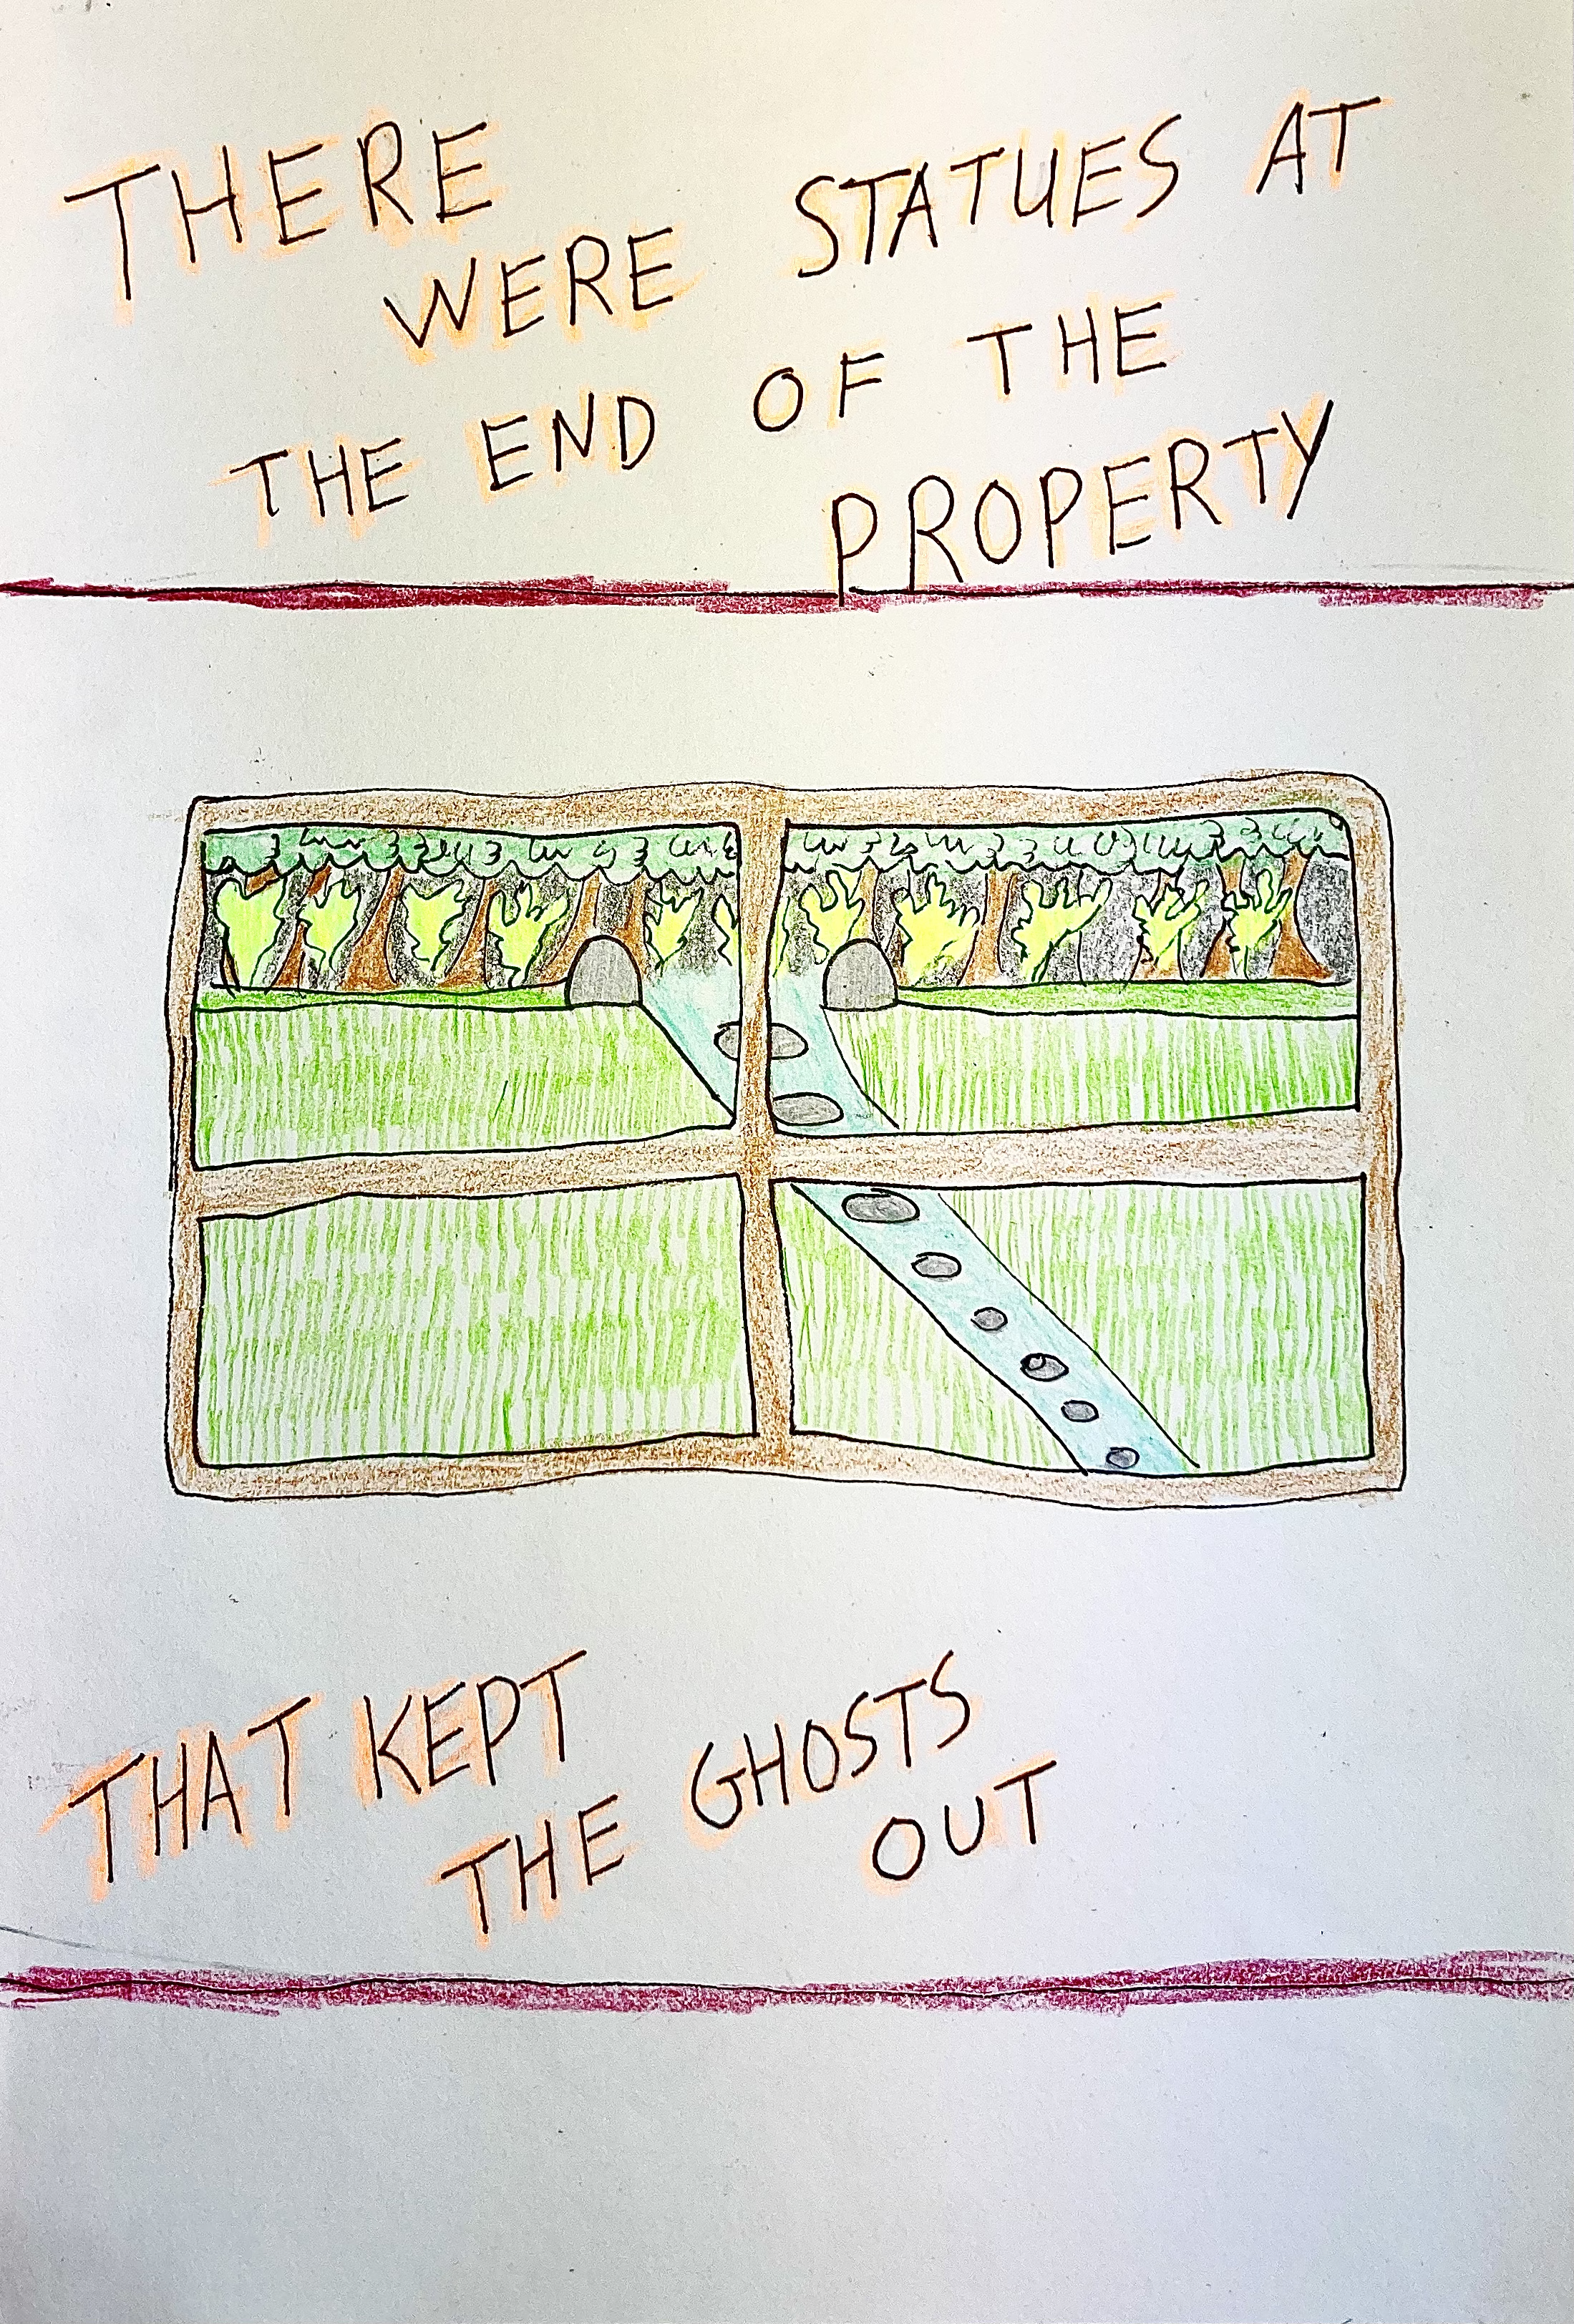 THERE
WERE STATUES AT
THE END OF THE
PROPERTY
THAT KEPT
THE GHOSTS
OUT